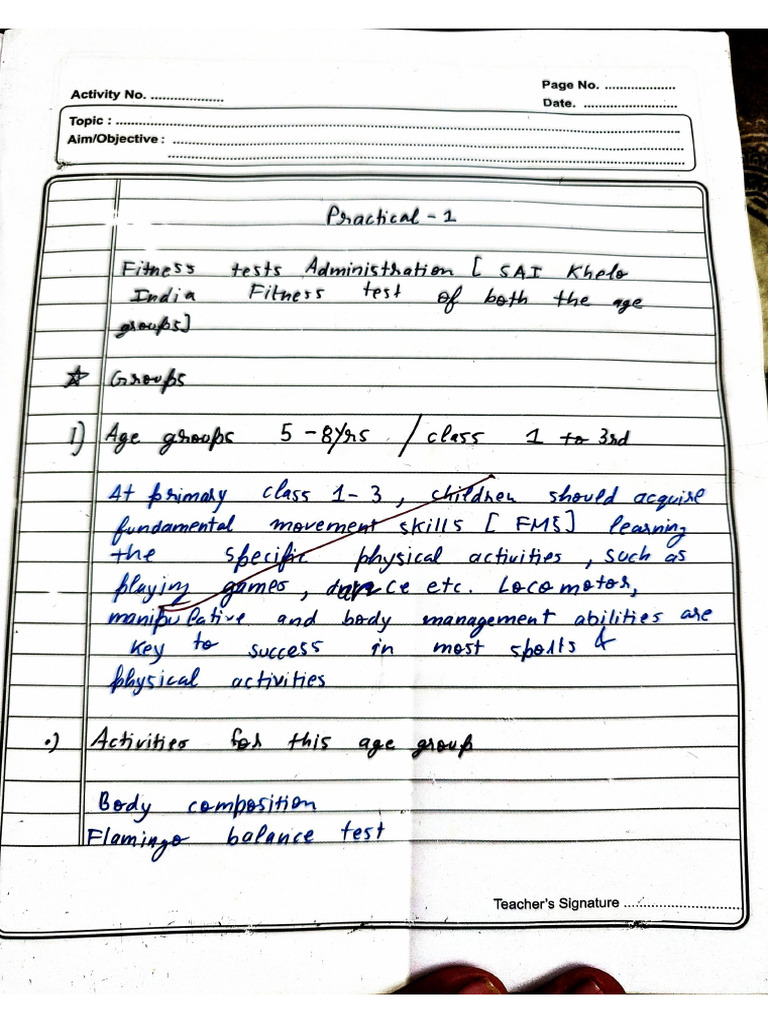 Activity No. ..................
Page No. ..................
Date. ........................
Topic : ........................
Aim/Objective : ........................
Practical - 1
Fitness tests Administration [ SAI Khelo
India Fitness test of both the age
groups]
☆ Groups
1) Age groups 5 - 8yrs / class 1 to 3rd
At primary class 1 - 3 , children should acquire
fundamental movement skills [ FMS ] learning
the specific physical activities , such as
playing games , dance etc. Locomotor,
manipulative and body management abilities are
key to success in most sports &
physical activities
•) Activities for this age group
Body composition
Flamingo balance test
Teacher's Signature ........................